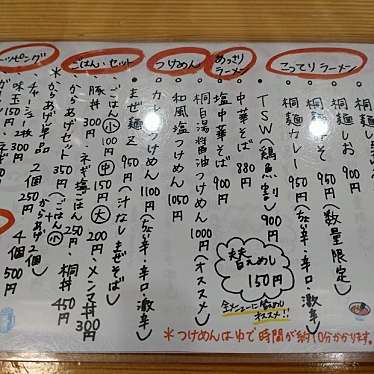 こってりラーメン
桐麺しお 900円
桐麺カレー 950円(ちょい辛・辛口・激辛)
TSW(鶏魚割し) 900円
あっさりラーメン
中華そば 880円
塩中華そば 900円
つけめん
桐白湯醤油つけめん 1000円(オススメ)
和風塩つけめん 1050円
カレーつけめん 1100円(ちょい辛・辛口・激辛)
まぜ麺Z 950円(汁なしまぜそば)
ごはん・セット
ごはん 小100円 中150円 大200円
豚丼 300円・ネギ塩ごはん
メンマ丼 300円
からあげセット 350円(ごはん小+からあげ2個)
桐丼 450円
*からあげ単品 2個 250円 4個 500円
トッピング
チャーシュー2枚 300円
味玉 150円
替えめし
150円
全メニューに替えめしオススメ!!
*つけめんはゆで時間が約10分かかります。